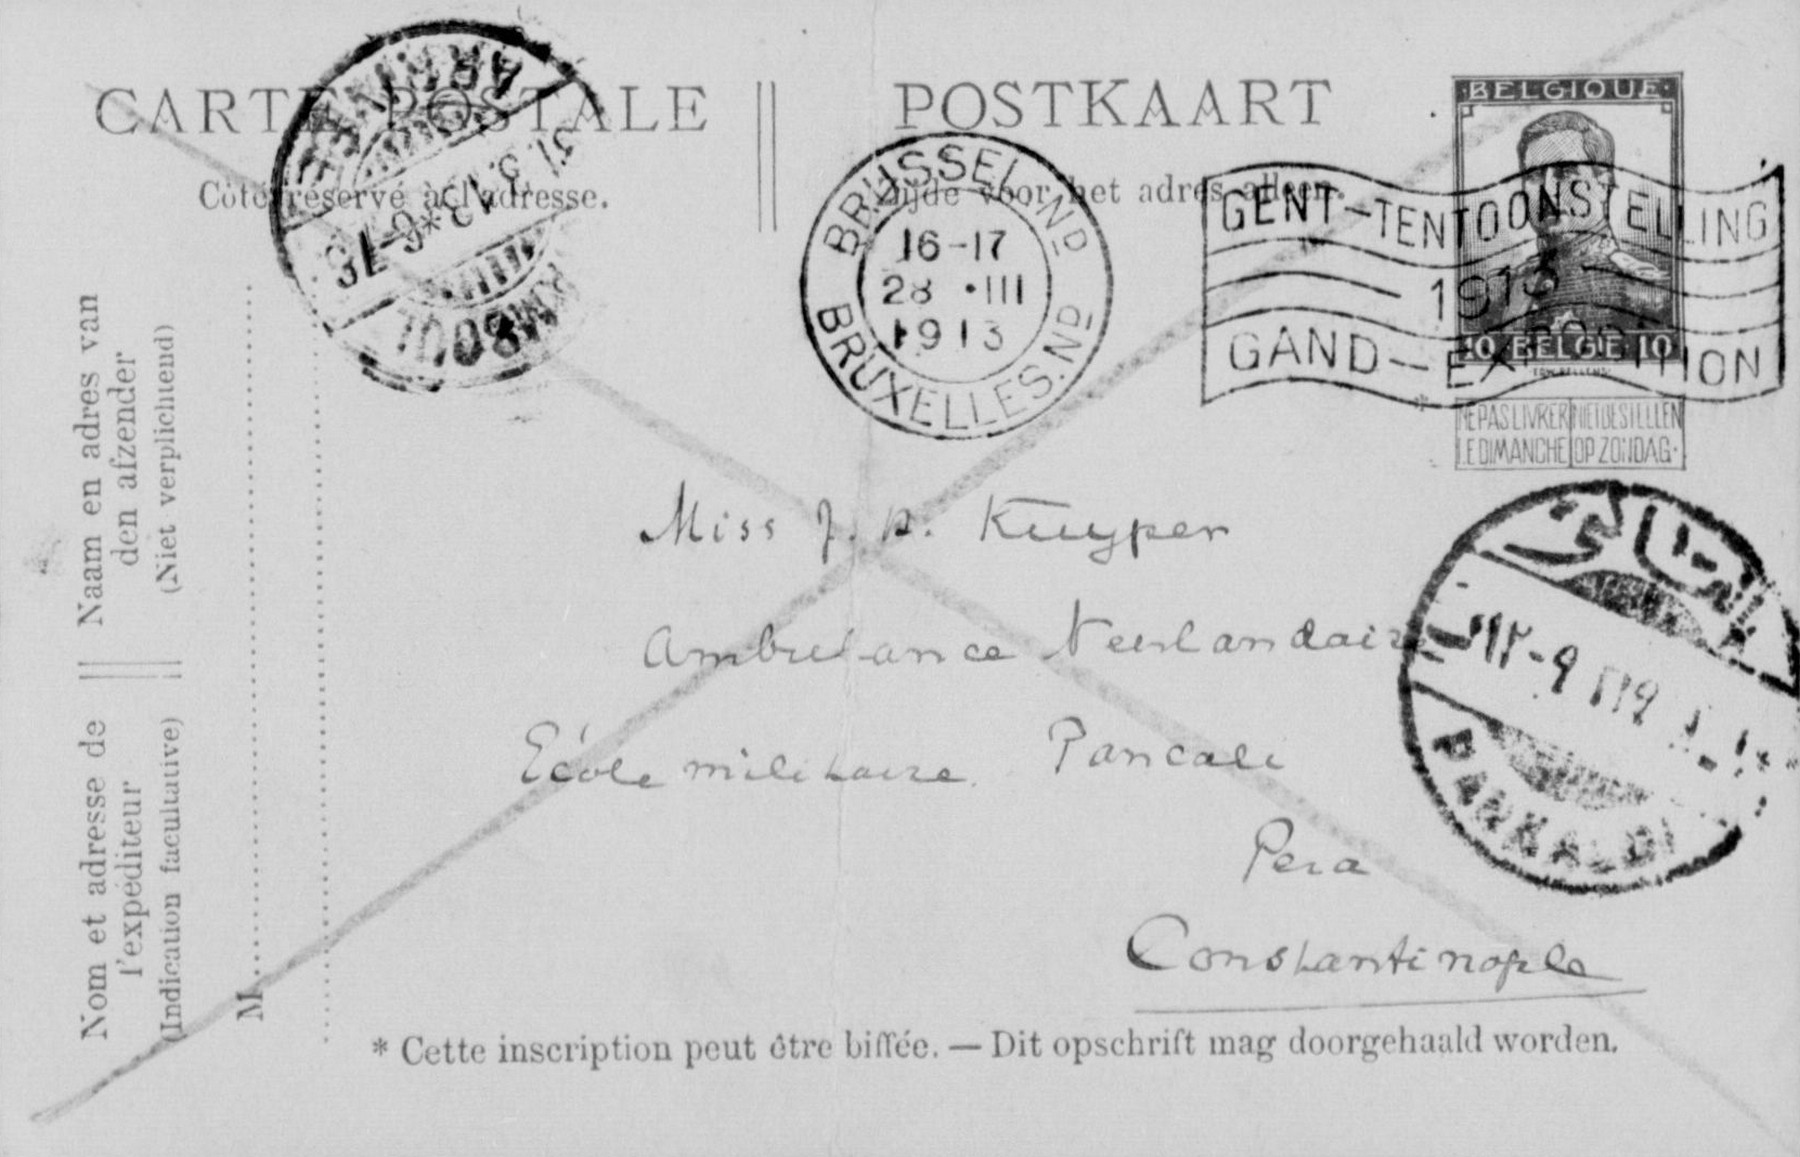 CARTE POSTALE
POSTKAART
Côté réservé à l'adresse.
Zijde voor het adres alleen.
BELGIQUE
10 BELGIE 10
NE PAS LIVRER LE DIMANCHE
NIET BESTELLEN OP ZONDAG
STAMBOUL
BRUSSEL. ND
16-17
28 • III
1913
BRUXELLES. ND
GENT-TENTOONSTELLING
1913
GAND-EXPOSITION
Naam en adres van
den afzender
(Niet verplichtend)
Nom et adresse de
l'expéditeur
(Indication facultative)
M
Miss J. A. Kuyper
Ambulance Neerlandaise
École militaire Pancali
Pera
Constantinople
PANKALDI
* Cette inscription peut être biffée. — Dit opschrift mag doorgehaald worden.